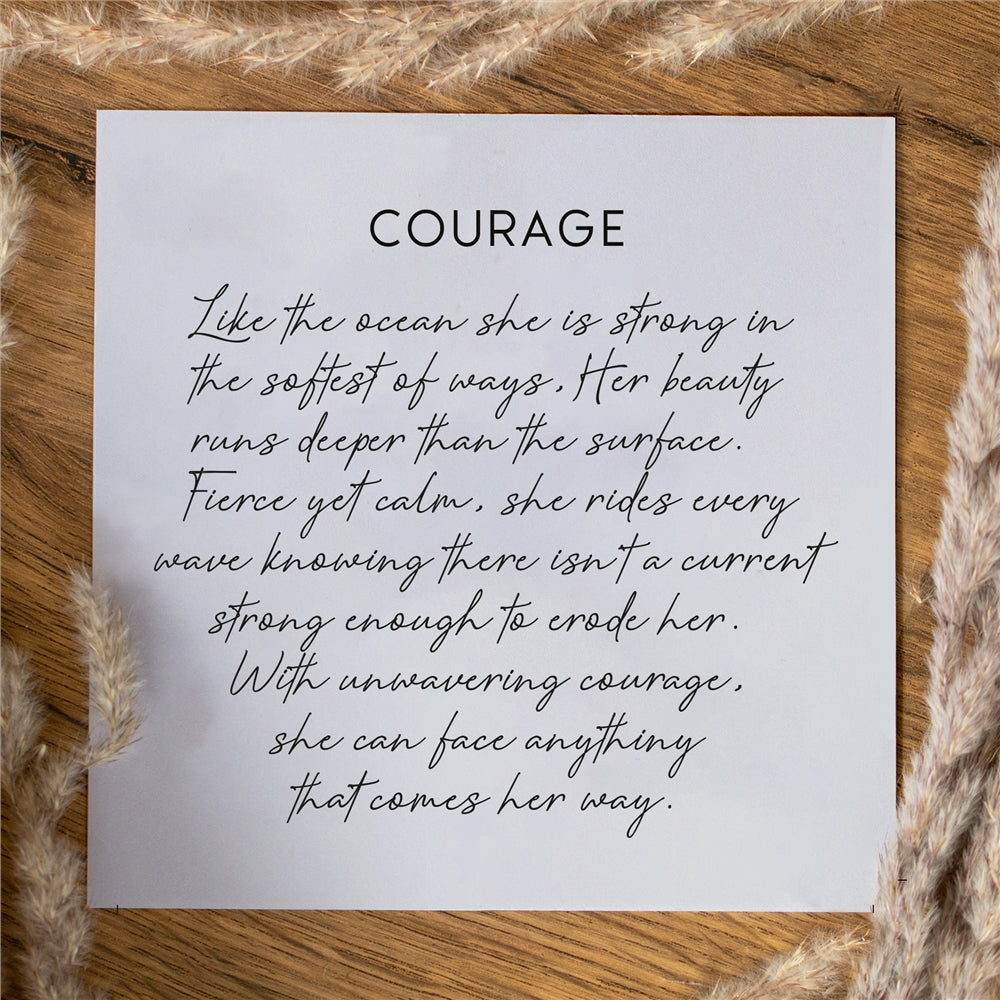 COURAGE
Like the ocean she is strong in
the softest of ways. Her beauty
runs deeper than the surface.
Fierce yet calm, she rides every
wave knowing there isn't a current
strong enough to erode her.
With unwavering courage,
she can face anything
that comes her way.